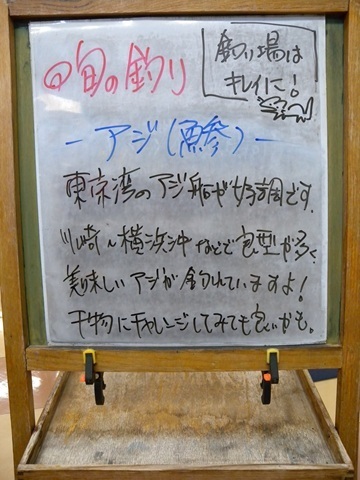 旬の釣り
釣り場は
キレイに!
ーアジ(鯵)ー
東京湾のアジ船が好調です。
川崎〜横浜沖などで良型が多く、
美味しいアジが釣れていますよ!
干物にチャレンジしてみても良いかも。